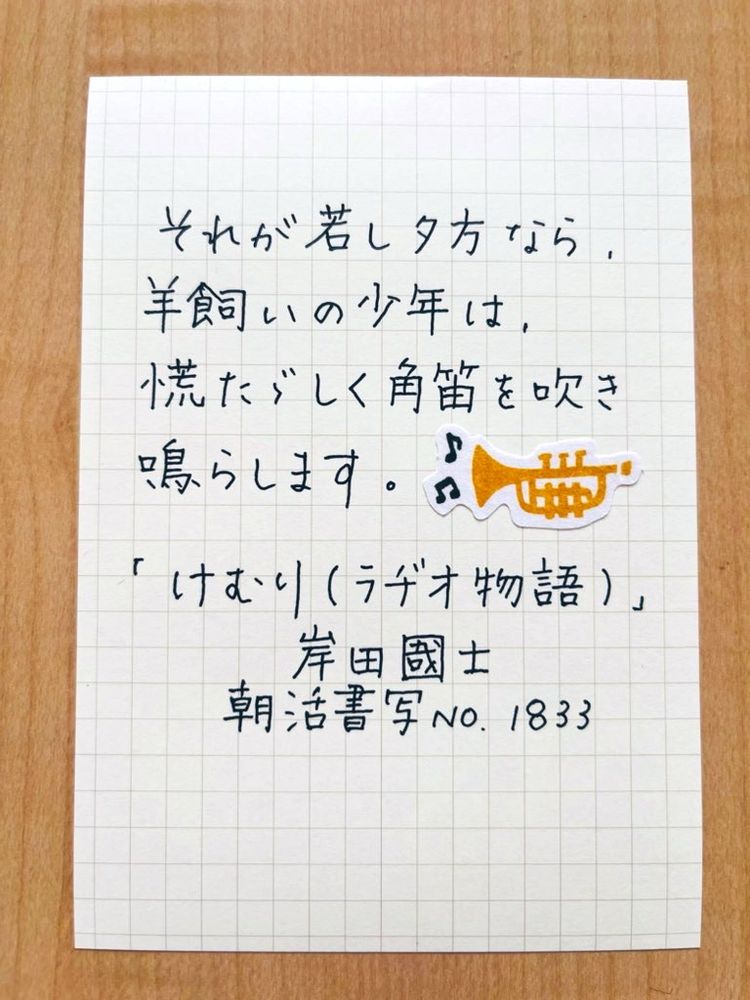 それが若し夕方なら、
羊飼いの少年は、
慌たゞしく角笛を吹き
鳴らします。
「けむり(ラヂオ物語)」
岸田國士
朝活書写NO. 1833